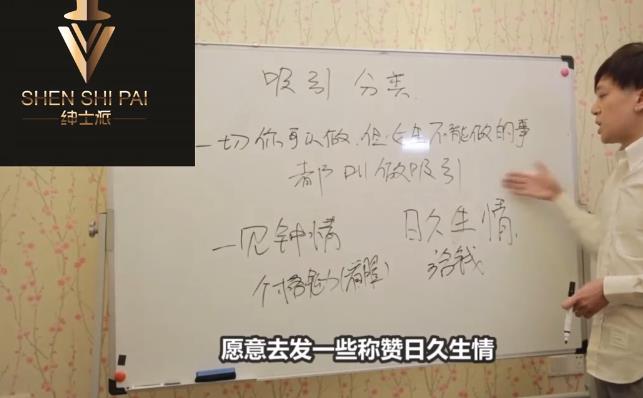 SHEN SHI PAI
绅士派
吸引 分类
一切你可以做,但女生不能做的事
都叫做吸引
一见钟情 日久生情
个人魅力(有腿) 给钱
愿意去发一些称赞日久生情